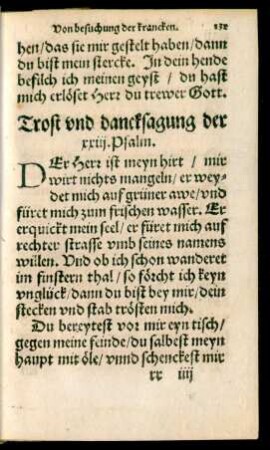 Von besuchung der krancken.
hen/das sie mir gestelt haben/dann
du bist mein stercke. In dein hende
befilch ich meinen geyst / du hast
mich erlöset Herr du trewer Gott.
Trost vnd dancksagung der
xxiij. Psalm.
DEr Herr ist meyn hirt / mir
wirt nichts mangeln/ er wey-
det mich auf grüner awe/vnd
füret mich zum frischen wasser. Er
erquickt mein seel/ er füret mich auf
rechter strasse vmb seines namens
willen. Vnd ob ich schon wanderet
im finstern thal/ so förcht ich keyn
vnglück/dann du bist bey mir/dein
stecken vnd stab trösten mich.
Du bereytest vor mir eyn tisch/
gegen meine feinde/du salbest meyn
haupt mit öle/vnnd schenckest mir
rr iiij